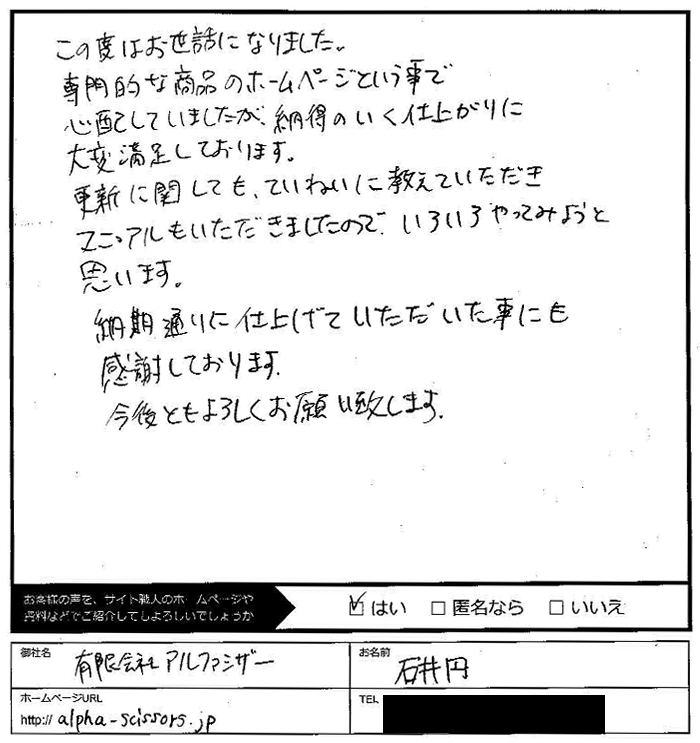 この度はお世話になりました。
専門的な商品のホームページという事で
心配していましたが、納得のいく仕上がりに
大変満足しております。
更新に関しても、ていねいに教えていただき
マニュアルもいただきましたので、いろいろやってみようと
思います。
納期通りに仕上げていただいた事にも
感謝しております。
今後ともよろしくお願い致します。
お客様の声を、サイト職人のホームページや
資料などでご紹介してしよろしいでしょうか
☑ はい □ 匿名なら □ いいえ
御社名 有限会社アルファシザー
お名前 石井円
ホームページURL
http:// alpha-scissors.jp
TEL